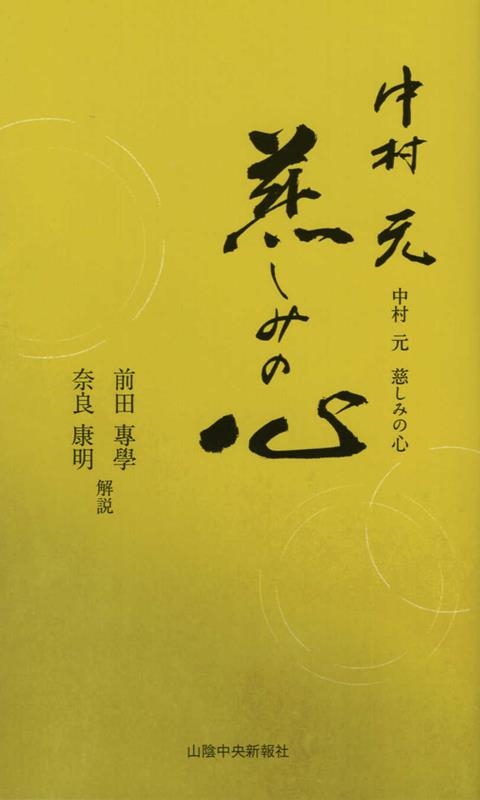 中村 元
慈しみの心
中村 元 慈しみの心
前田 專學
奈良 康明
解説
山陰中央新報社